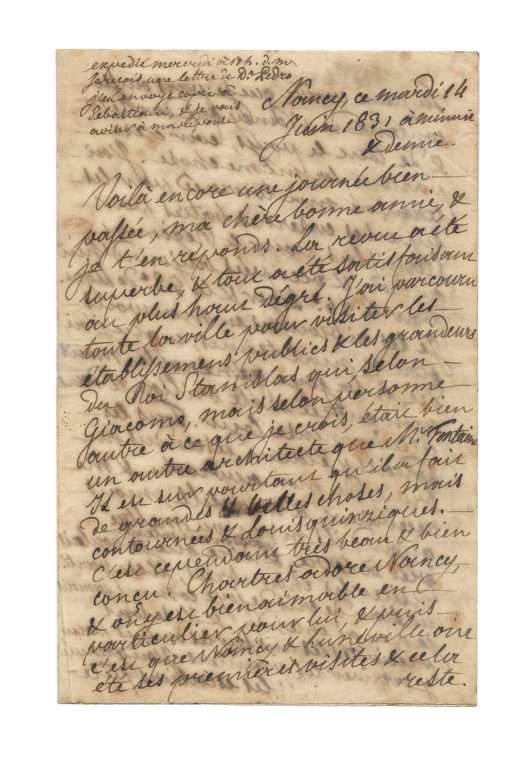 expedié mercredi à
je reçois une lettre de Dn Pedro
j'en envoye copie à
Sébastiani, & je vous
avise
Nancy, ce mardi 14
Juin 1831 à minuit
& demie.
Voilà encore une journée bien
passée, ma chère bonne amie, &
je t'en réponds. La revue a été
superbe, & tout a été satisfaisant
au plus haut dégré. J'ai parcouru
toute la ville pour visiter les
établissemens publics & les grandeurs
du Roi Stanislas qui selon
Giacomo, mais selon personne
autre à ce que je crois, étoit bien
un autre architecte que Mr. Fontaine
Il est sur pourtant qu'il a fait
de grandes & belles choses, mais
contournées & Louisquinziques.
C'est cependant très beau & bien
conçu. Chartres adore Nancy,
& on y est bien aimable en
particulier pour lui, & puis
c'est que Nancy & Lunéville ont
été ses premières visites & cela
reste.